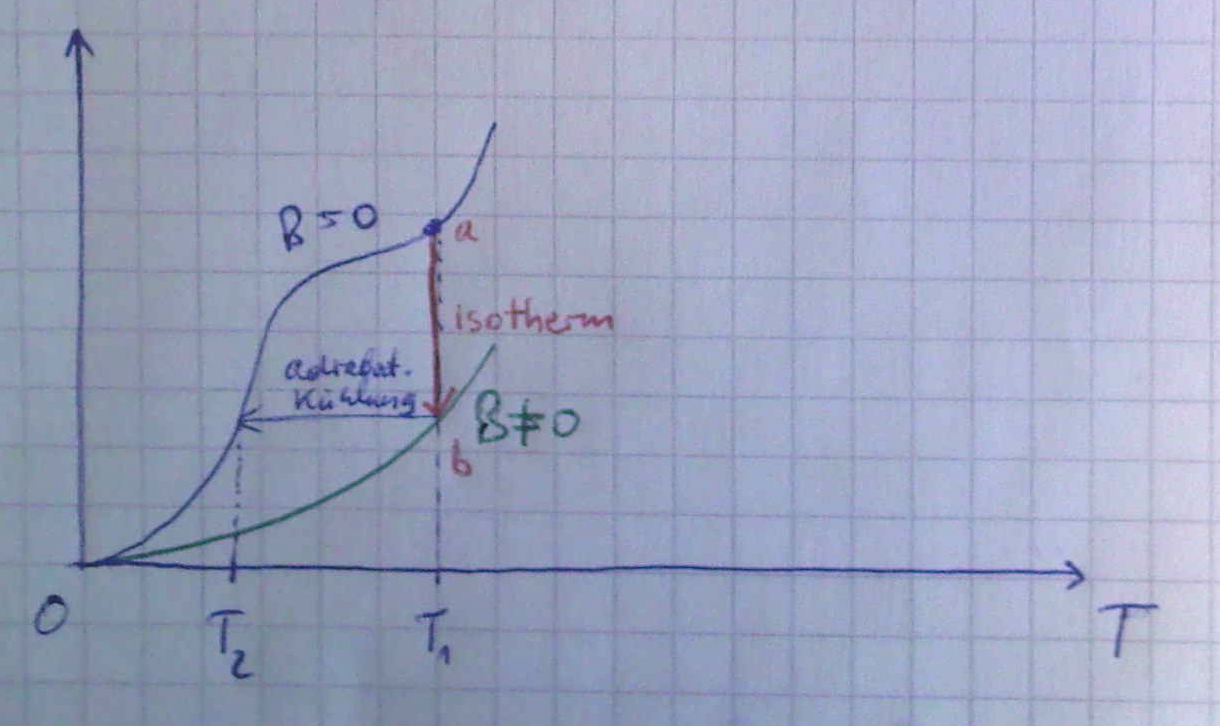 B = 0
a
isotherm
adiabat.
Kühlung
B ≠ 0
b
0
T₂
T₁
T